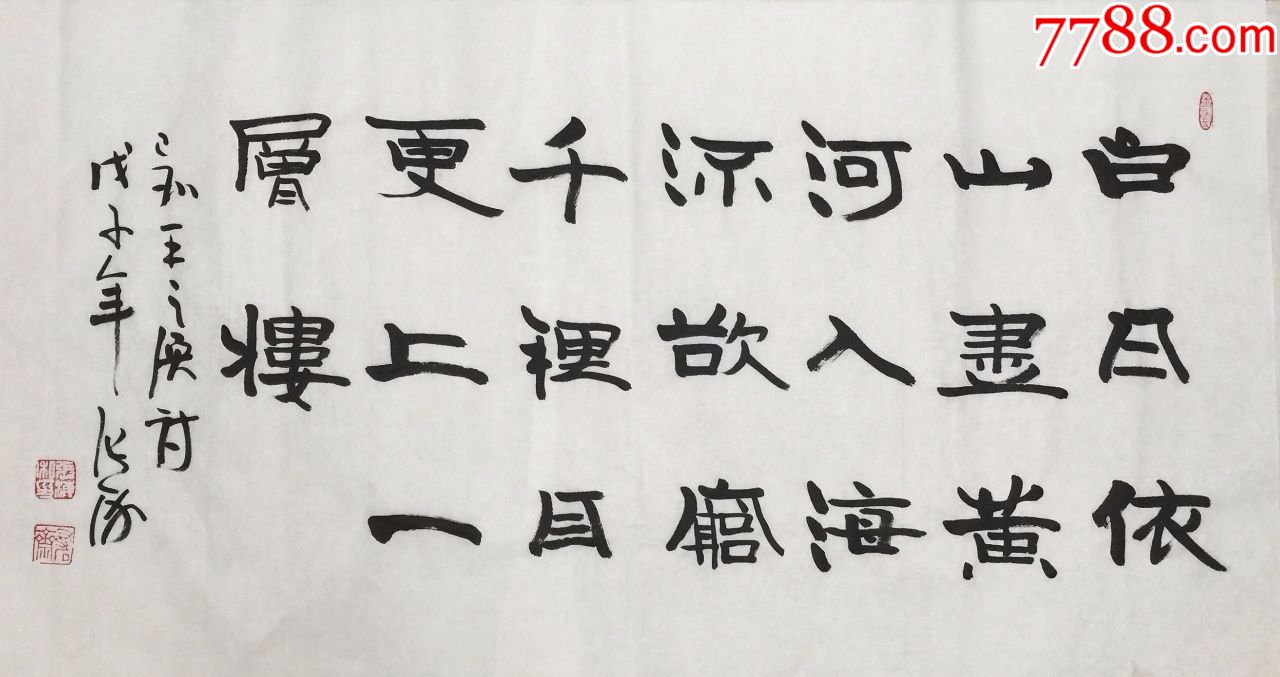 7788.com
白日依
山盡黄
河入海
流欲窮
千裡目
更上一
層樓
王之渙诗
戊子年